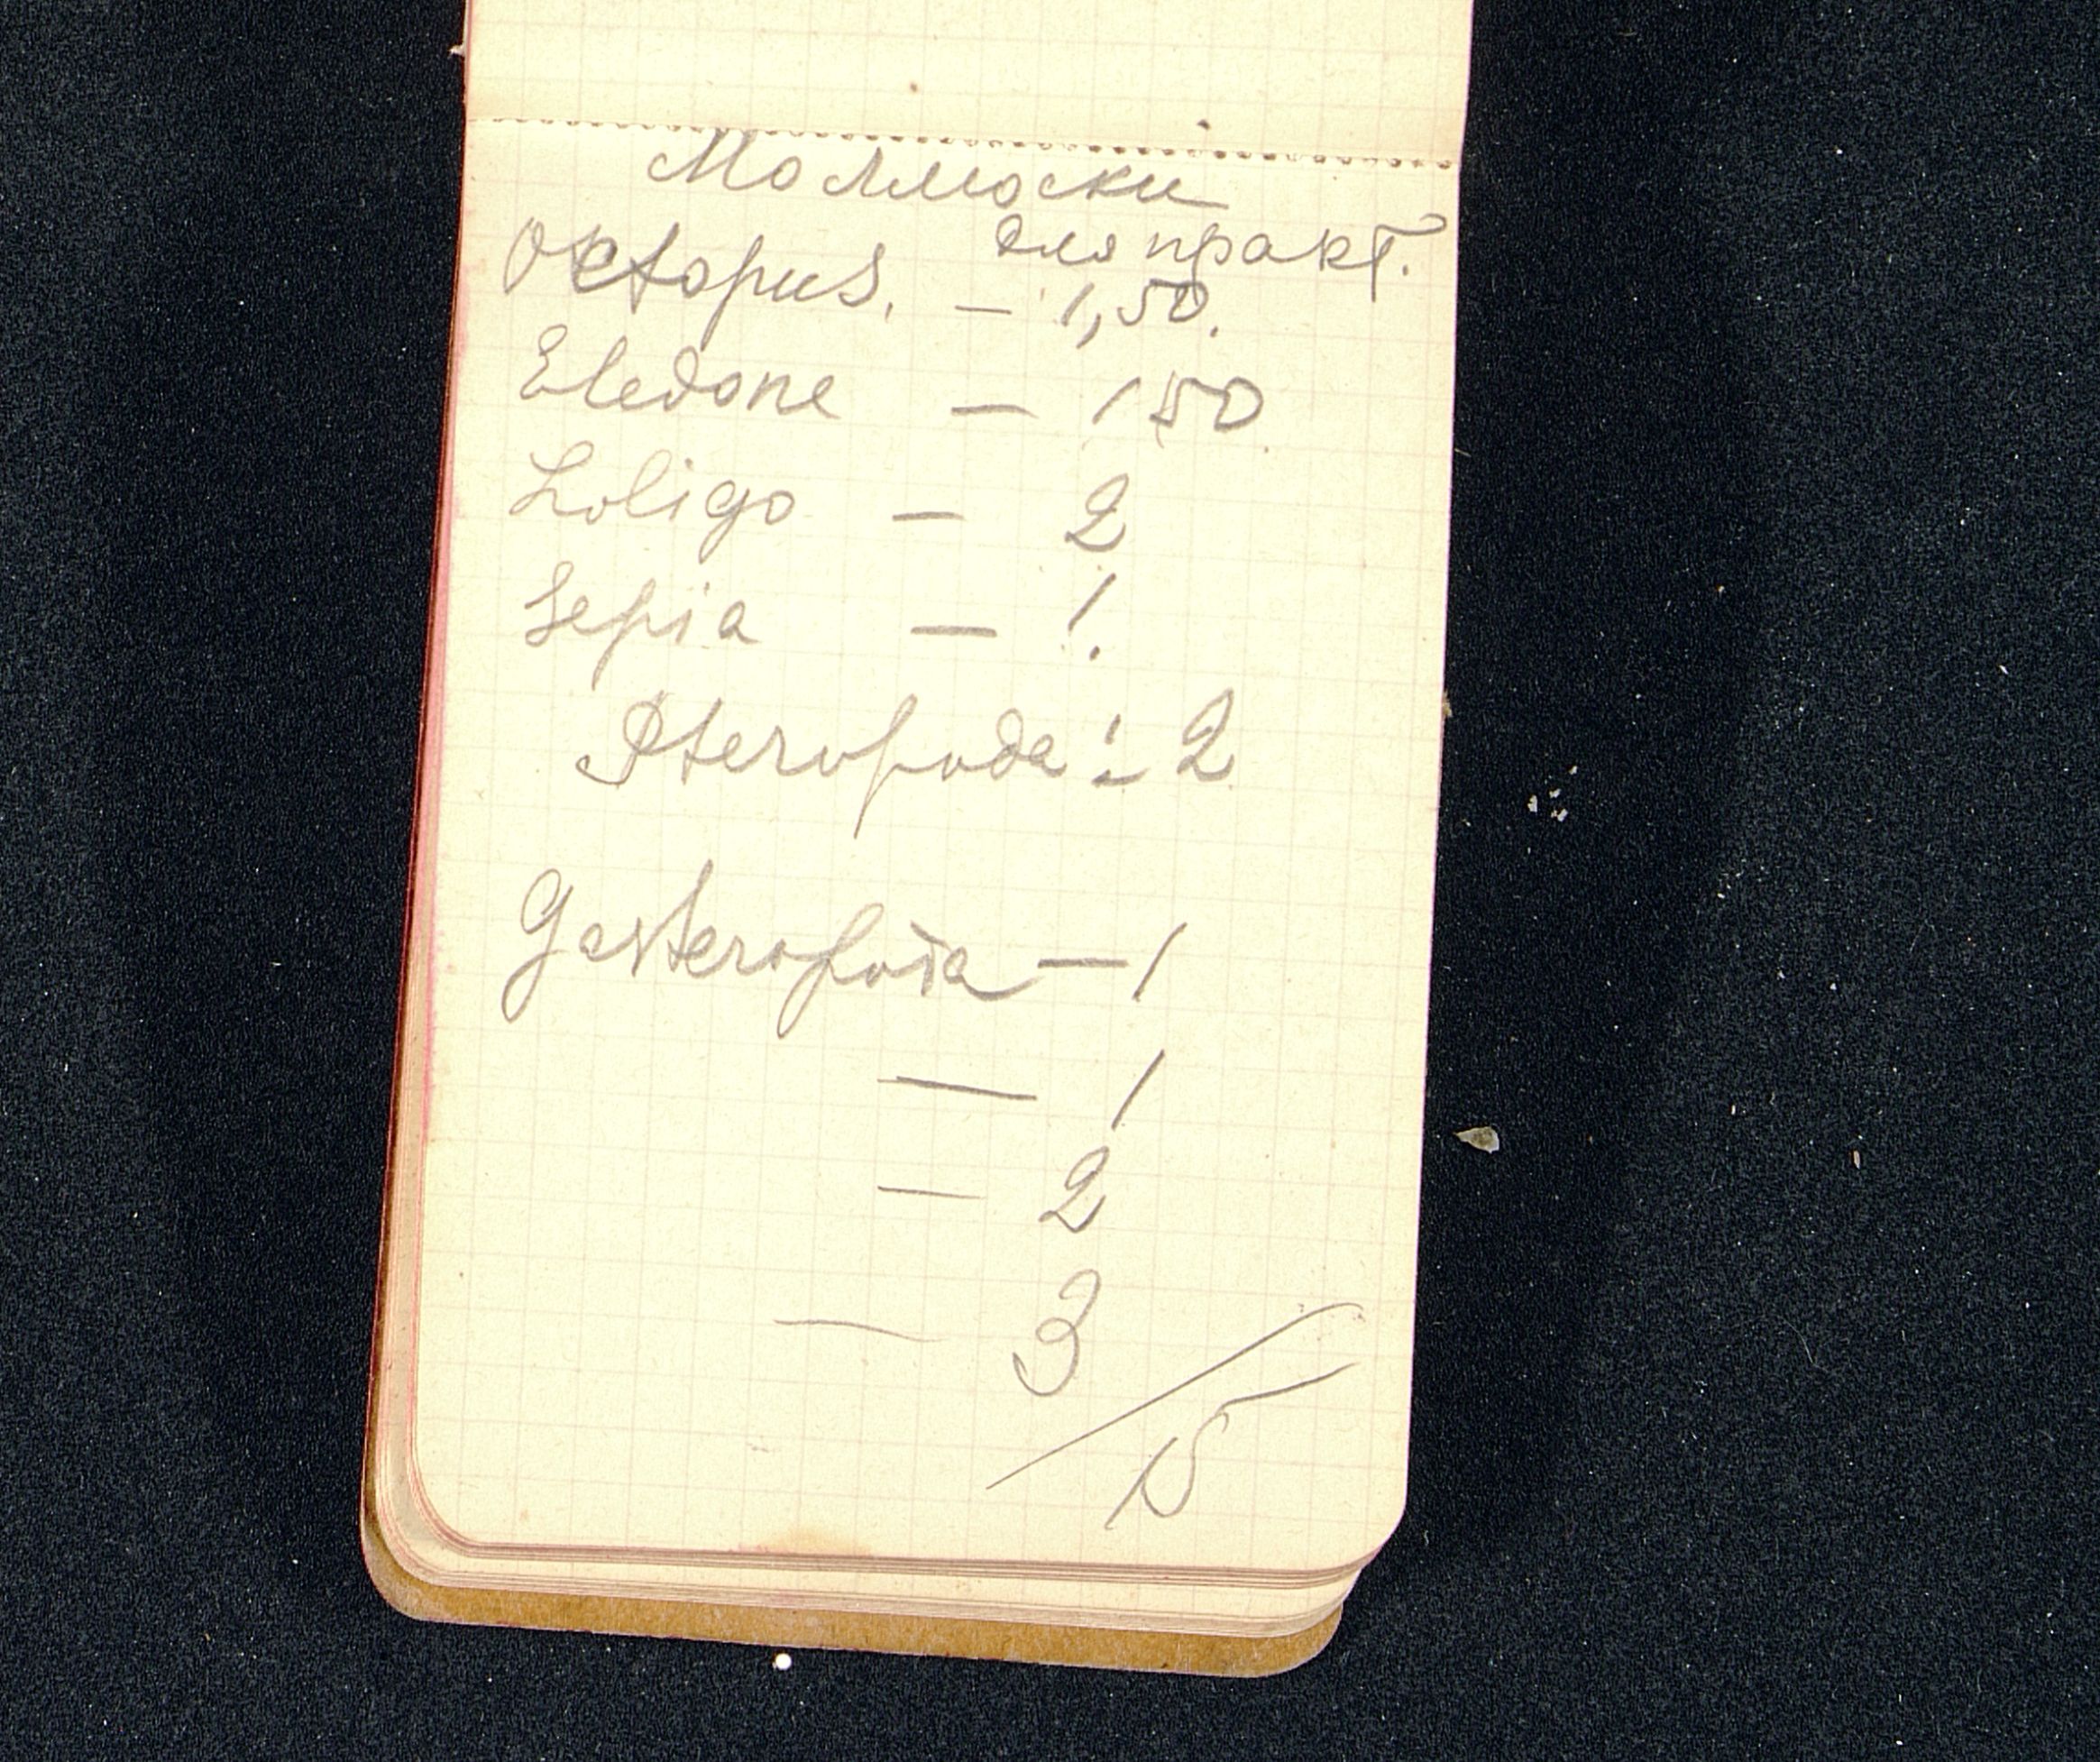 Моллюски
для практ.
Octopus. — 1,50.
Eledone — 1 50
Loligo — 2
Sepia — 1.
Pteropoda : 2
Gasteropoda — 1
— 1
— 2
— 3
15